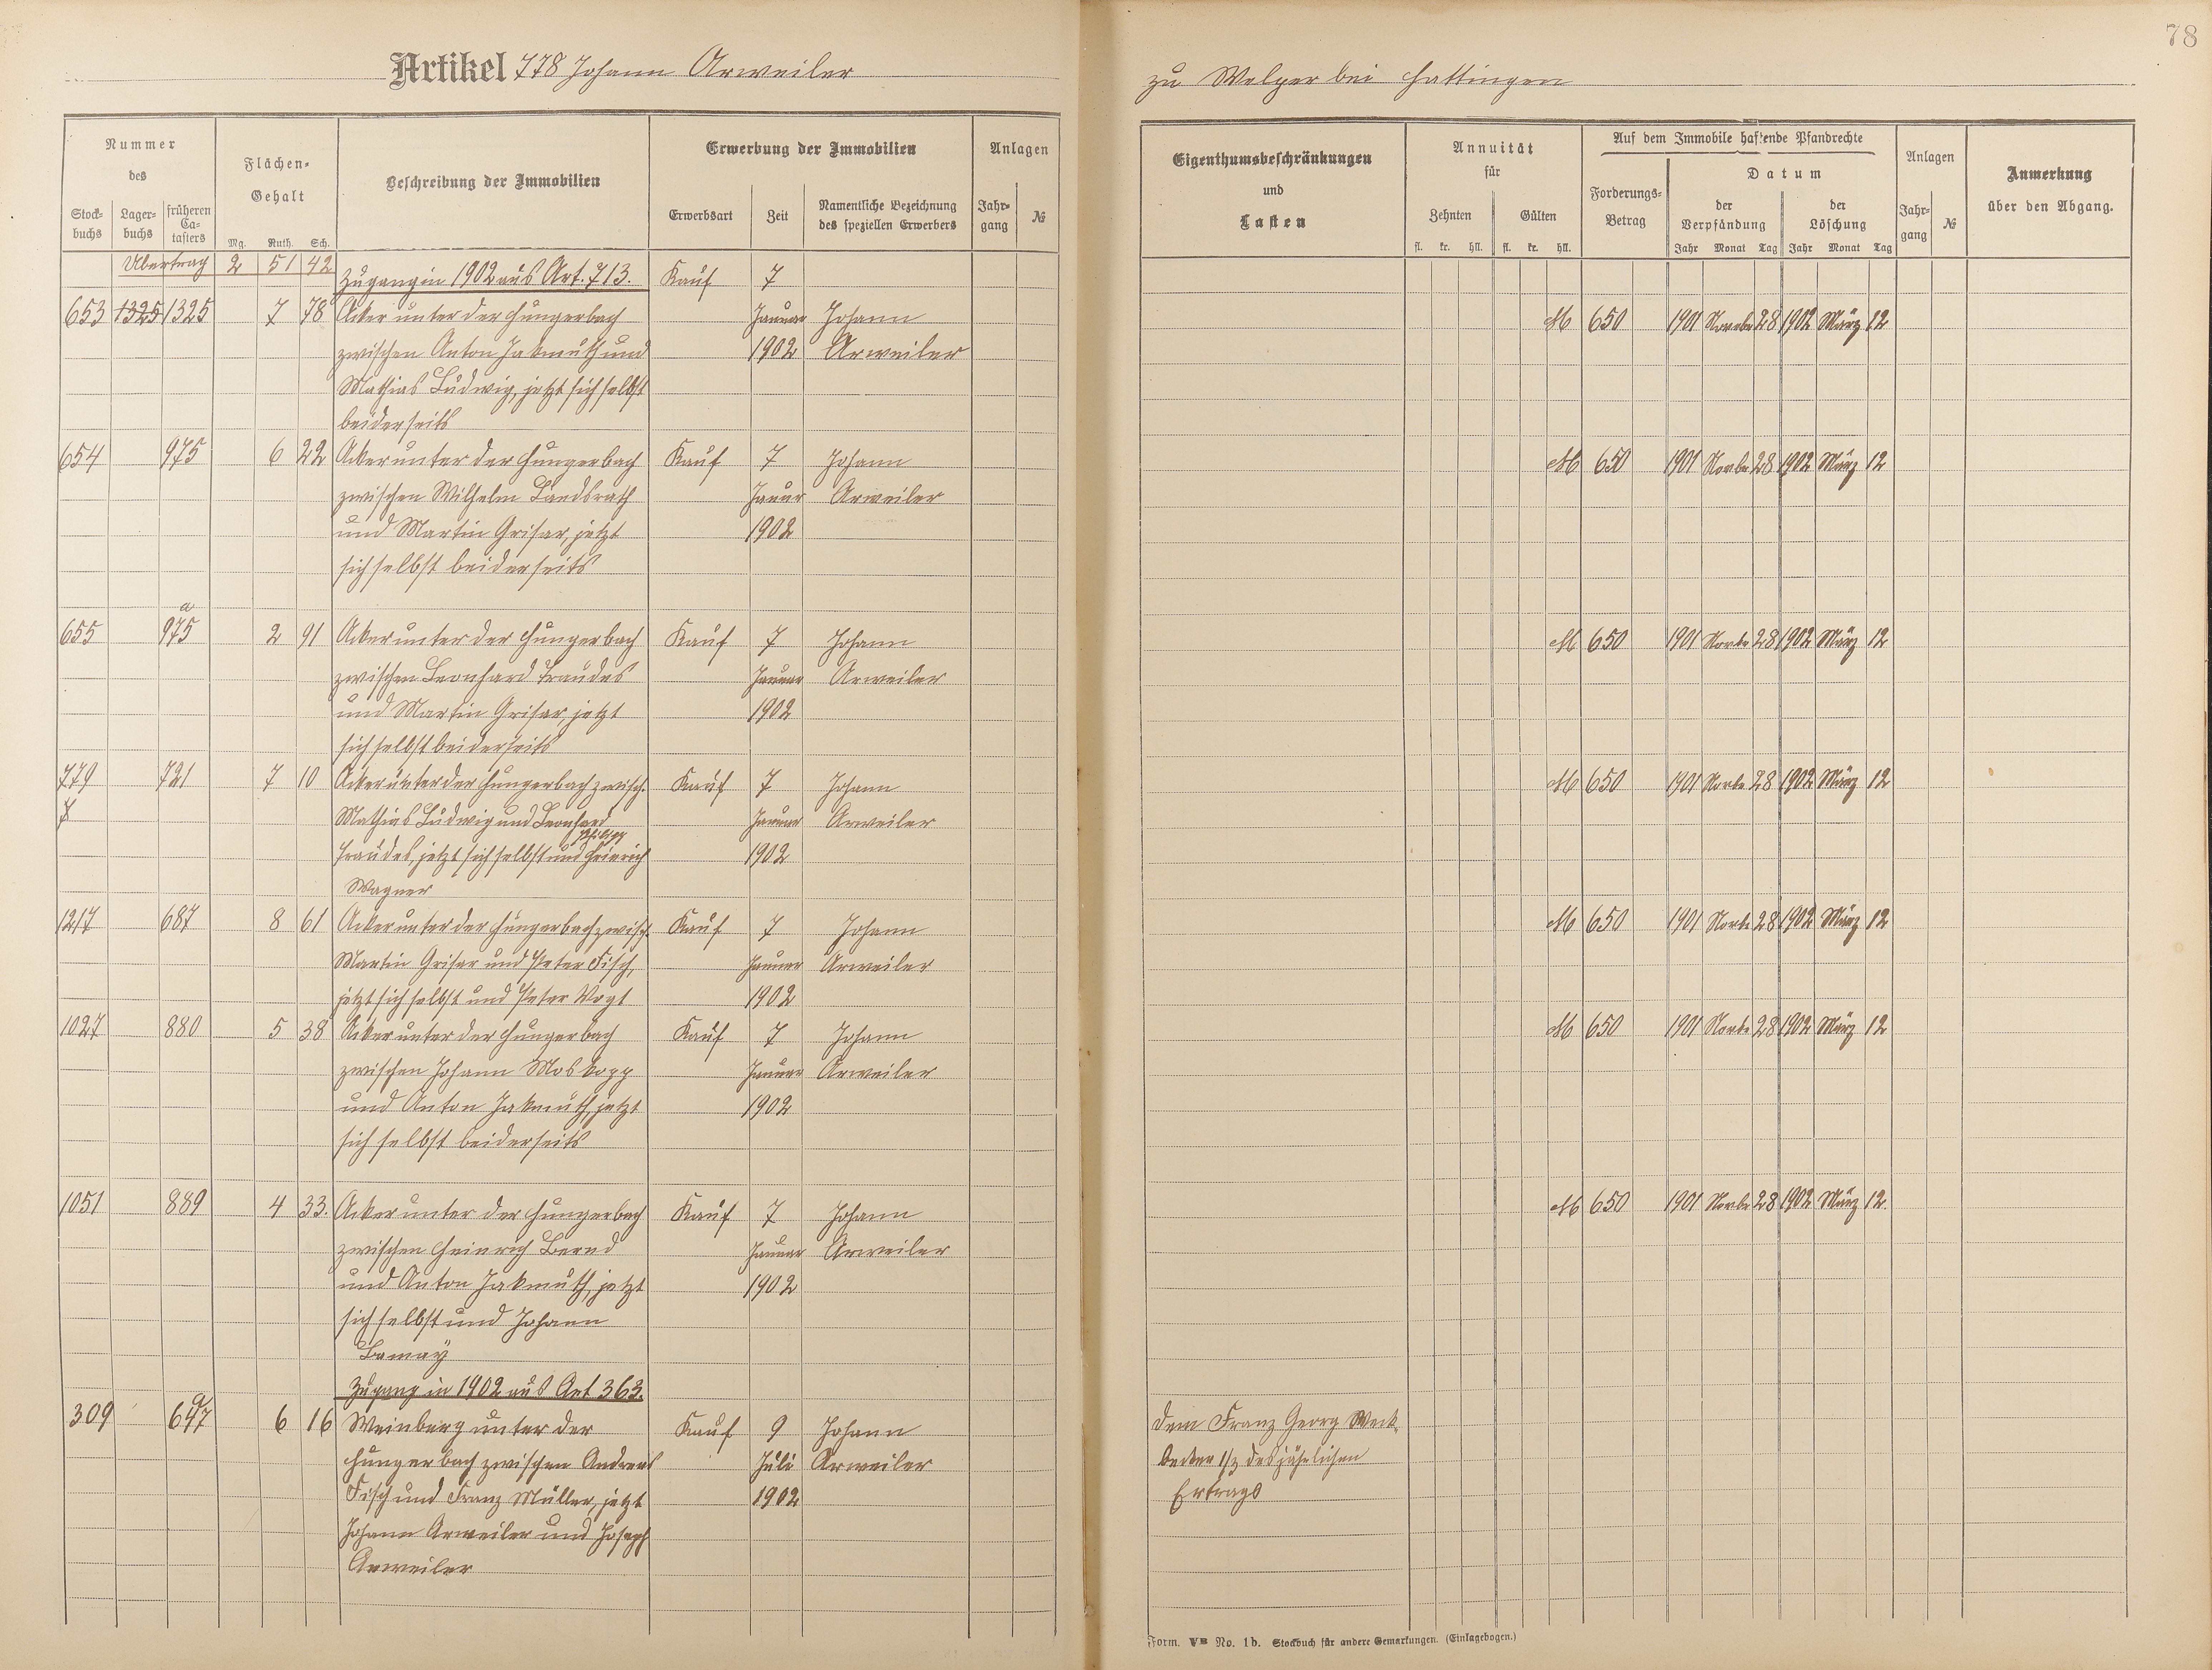 78
Artikel 778 Johann Arweiler
zu Welper bei Hattingen
Nummer
des
Stock-
buchs
Lager-
buchs
früheren
Ca-
tasters
Flächen-
Gehalt
Mg. Ruth. Sch.
Beschreibung der Immobilien
Erwerbung der Immobilien
Erwerbsart
Zeit
Namentliche Bezeichnung
des speziellen Erwerbers
Anlagen
Jahr-
gang
№
Eigenthumsbeschränkungen
und
Lasten
Annuität
für
Zehnten
Gülten
fl. kr. hll. fl. kr. hll.
Auf dem Immobile haftende Pfandrechte
Forderungs-
Betrag
Datum
der
Verpfändung
der
Löschung
Jahr Monat Tag Jahr Monat Tag
Anlagen
Jahr-
gang
№
Anmerkung
über den Abgang.
Übertrag 2 51 42
Zugang in 1902 aus Art. 713. Kauf 7
653 1325 1325 7 78 Acker unter der Hungerbach Januar Johann M 650 1901 Novbr 28 1902 März 12
zwischen Anton Jakmuth und 1902 Arweiler
Mathias Ludwig, jetzt sich selbst
beiderseits
654 975 6 22 Acker unter der Hungerbach Kauf 7 Johann M 650 1901 Novbr 28 1902 März 12
zwischen Wilhelm Landsrath Januar Arweiler
und Martin Grisar, jetzt 1902
sich selbst beiderseits
a
655 975 2 91 Acker unter der Hungerbach Kauf 7 Johann M 650 1901 Novbr 28 1902 März 12
zwischen Leonhard Traudes Januar Arweiler
und Martin Grisar, jetzt 1902
sich selbst beiderseits
779 721 7 10 Acker unter der Hungerbach zwisch. Kauf 7 Johann M 650 1901 Novbr 28 1902 März 12
Mathias Ludwig und Leonhard Januar Arweiler
Philipp
Traudes, jetzt sich selbst und Heinrich 1902
Wagner
1217 687 8 61 Acker unter der Hungerbach zwisch. Kauf 7 Johann M 650 1901 Novbr 28 1902 März 12
Martin Grisar und Peter Fisch, Januar Arweiler
jetzt sich selbst und Peter Vogt 1902
1027 880 5 38 Acker unter der Hungerbach Kauf 7 Johann M 650 1901 Novbr 28 1902 März 12
zwischen Johann Moskopp Januar Arweiler
und Anton Jakmuth, jetzt 1902
sich selbst beiderseits
1051 889 4 33. Acker unter der Hungerbach Kauf 7 Johann M 650 1901 Novbr 28 1902 März 12.
zwischen Heinrich Bernd Januar Arweiler
und Anton Jakmuth, jetzt 1902
sich selbst und Johann
Lamay
Zugang in 1902 aus Art 363.
a
309 647 6 16 Weinberg unter der Kauf 9 Johann dem Franz Georg Weck-
Hungerbach zwischen Andreas Juli Arweiler becker 1/3 des jährlichen
Fisch und Franz Müller, jetzt 1902 Ertrags
Johann Arweiler und Joseph
Arweiler
Form. VB No. 1b. Stockbuch für andere Gemarkungen. (Einlagebogen.)